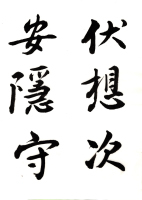 伏想次
安隱守